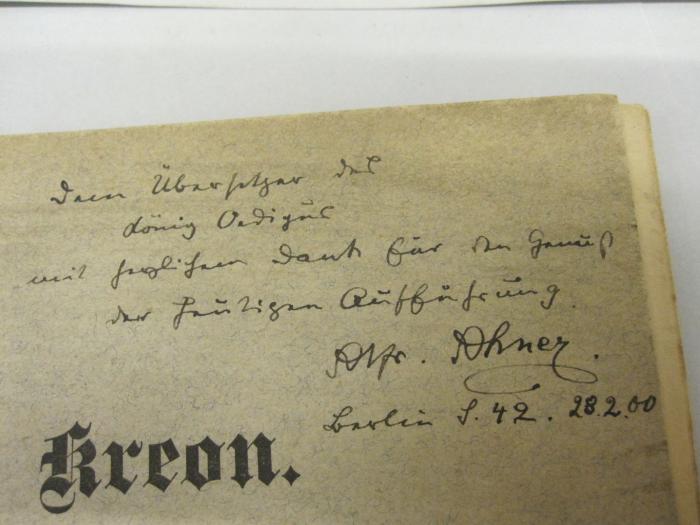 Dem Übersetzer des
König Oedipus
mit herzlichem Dank für den Genuß
der heutigen Aufführung.
Alfr. Ahner.
Berlin S. 42. 28.2.00
Kreon.